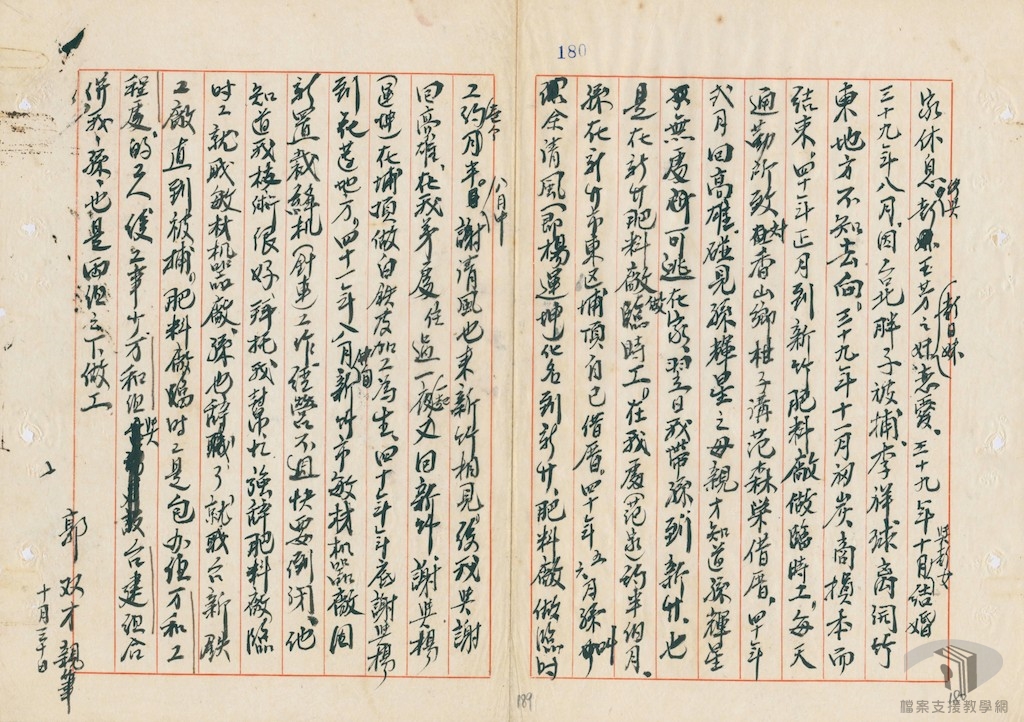 180
家休息與彭玉芳之妹戀愛。三十九年十月結婚
(彭日妹)
三十九年八月因三龍胖子被捕,李祥球离洞竹
東地方不知去向。三十九年十一月初炭商損本而
結束,四十年正月到新竹肥料廠做臨時工,每天
通勤所致對香山鄉柑子溝范森榮借厝,四十年
弍月回高雄碰見孫輝星之母親才知道孫輝星
無處可逃在家,翌日我帶孫到新竹,也
是在新竹肥料廠做臨時工。在我處(范家)約半個月。
孫在新竹市東区埔頂自己借厝,四十年五六月孫叫
余清風(即楊運坤化名)到新竹,肥料廠做臨時
工約月半。謝清風也來新竹相見,後我與謝
八月中
回高雄,在我弟處住過一夜又回新竹,謝與楊
(運坤)在埔頂做白鉄皮加工為生,四十年年底謝與楊
到花蓮地方,四十一年八月中旬新竹市敏材机器廠因
新置裁縫机(針車)工作經營不週快要倒閉,他
知道我技術很好,拜托我幫忙強辞肥料廠臨
时工就職敏材机器廠,孫也辞職了就職台新鉄
工廠直到被捕,肥料廠臨时工是包办組万和工
程處,的工人後工事少万和組與台建組合
併我,孫,也是兩組之下做工
郭双才 親筆
十月三十日
189
檔案支援教學網